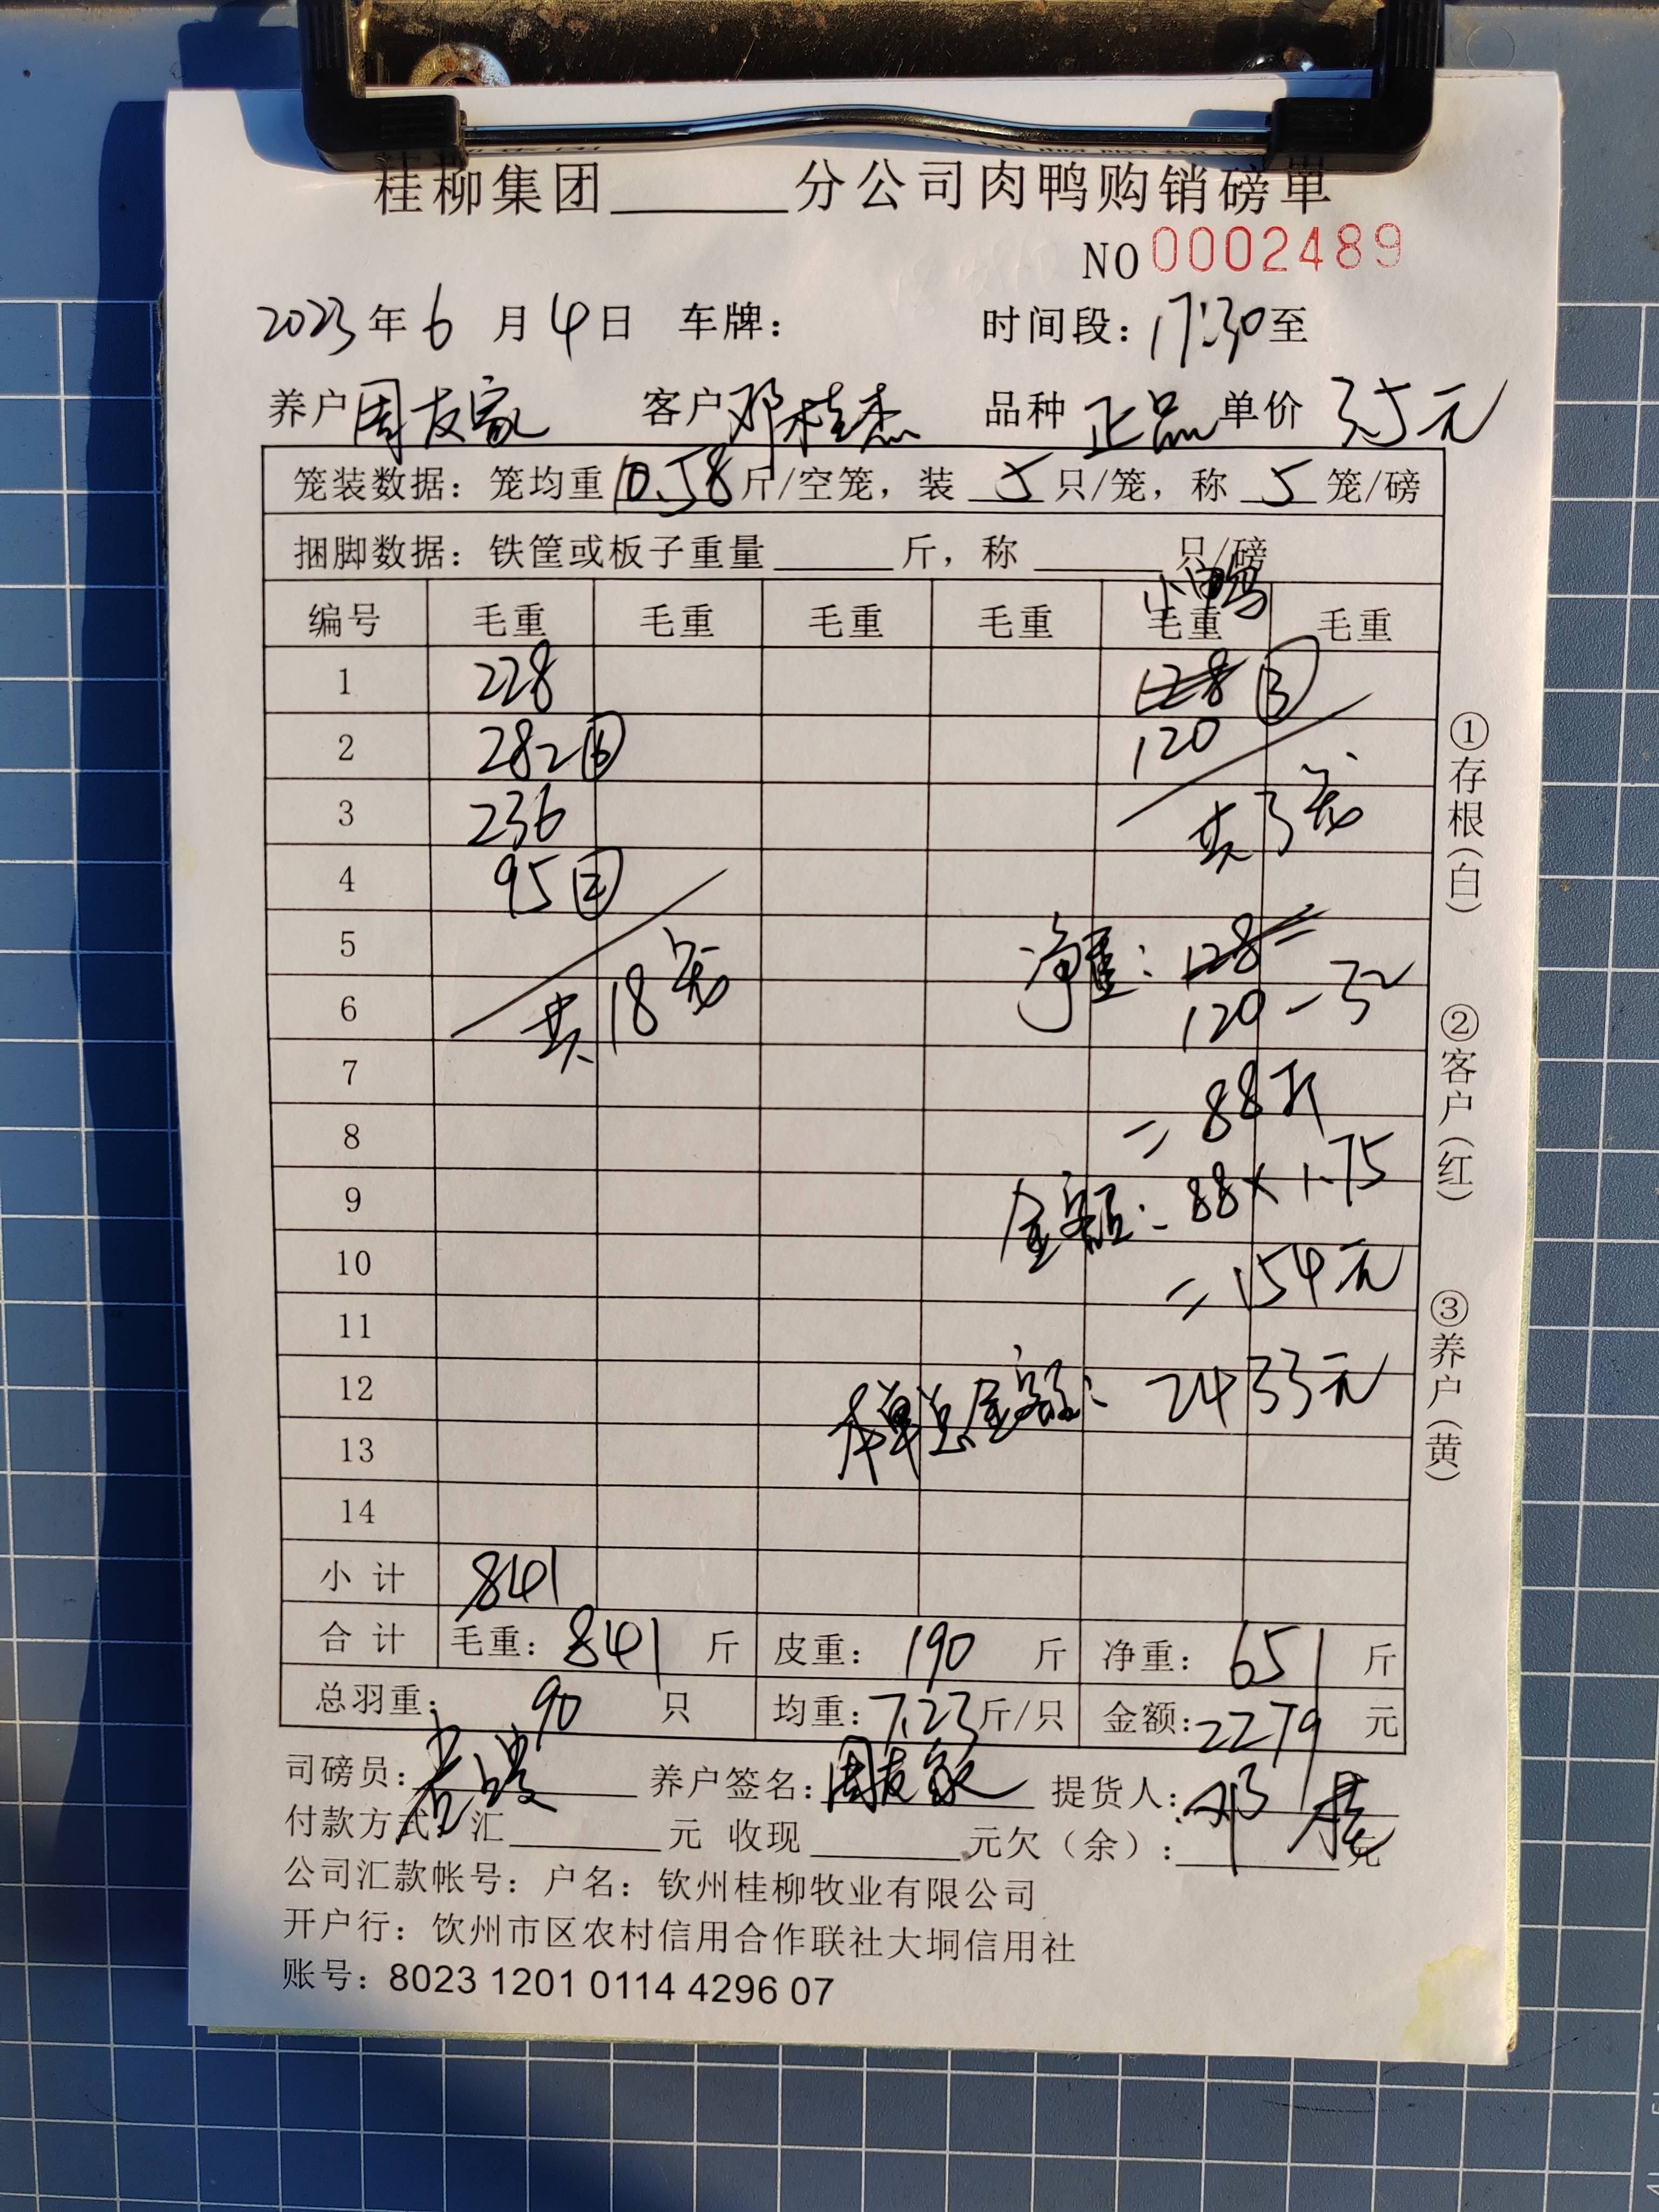 桂柳集团______分公司肉鸭购销磅单
NO 0002489
2023年6月4日 车牌： 时间段：17:30至
养户周友家 客户邓桂杰 品种正品 单价3.5元
笼装数据：笼均重10.58斤/空笼，装5只/笼，称5笼/磅
捆脚数据：铁筐或板子重量______斤，称______只/磅
小鸭
编号 毛重 毛重 毛重 毛重 毛重 毛重
1 228 128 ③
2 282⑥ 120
3 236 共3笼
4 95②
5 净重：128
6 共18笼 120-32
7 =88斤
8
9 金额：88×1.75
10 =154元
11
12 本单总金额：2433元
13
14
小计 841
合计 毛重：841斤 皮重：190斤 净重：651斤
总羽重：90只 均重：7.23斤/只 金额：2279元
司磅员： 养户签名：周友家 提货人：邓桂
付款方式：汇______元 收现______元欠（余）：______元
公司汇款帐号：户名：钦州桂柳牧业有限公司
开户行：钦州市区农村信用合作联社大垌信用社
账号：8023 1201 0114 4296 07
①存根（白）
②客户（红）
③养户（黄）